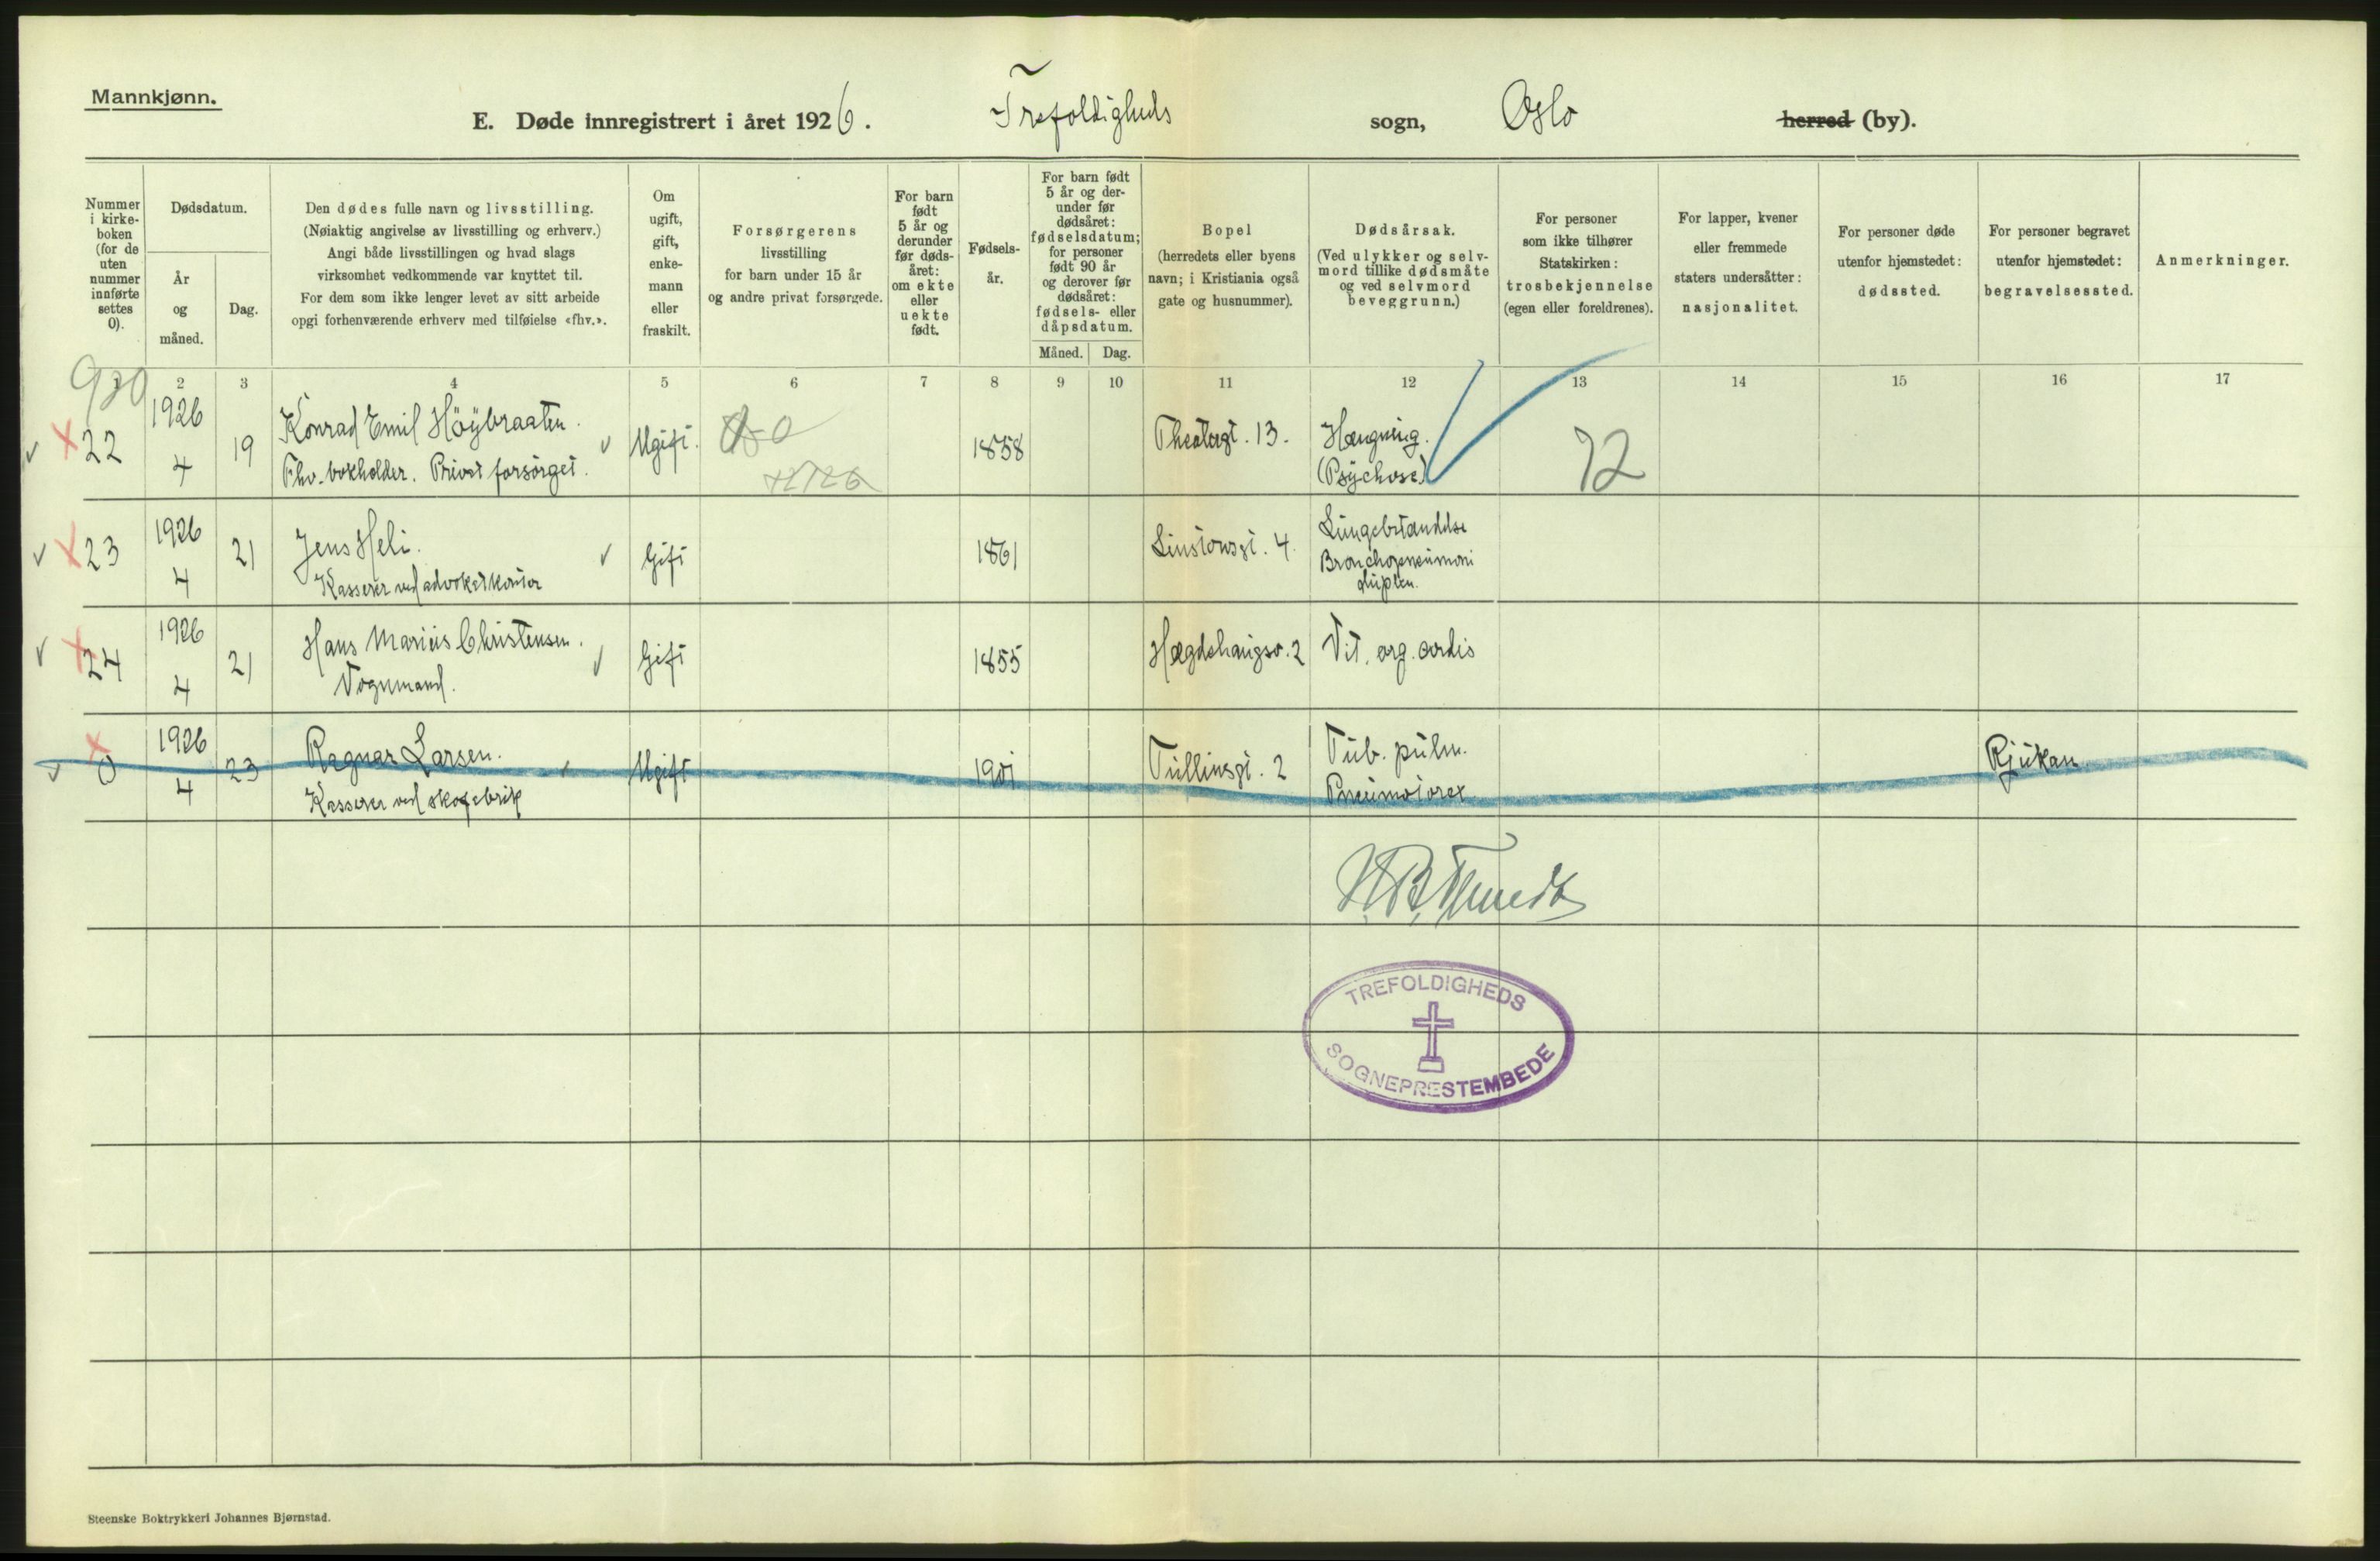 Mannkjønn.
E. Døde innregistrert i året 1926. Trefoldigheds sogn, Oslo herred (by).
Nummer
i kirke-
boken
(for de
uten
nummer
innførte
settes
0).
Dødsdatum.
År
og
måned.
Dag.
Den dødes fulle navn og livsstilling.
(Nøiaktig angivelse av livsstilling og erhverv.)
Angi både livsstillingen og hvad slags
virksomhet vedkommende var knyttet til.
For dem som ikke lenger levet av sitt arbeide
opgi forhenværende erhverv med tilføielse «fhv.».
Om
ugift,
gift,
enke-
mann
eller
fraskilt.
Forsørgerens
livsstilling
for barn under 15 år
og andre privat forsørgede.
For barn
født
5 år og
derunder
før døds-
året:
om ekte
eller
uekte
født.
Fødsels-
år.
For barn født
5 år og der-
under før
dødsåret:
fødselsdatum;
for personer
født 90 år
og derover før
dødsåret:
fødsels- eller
dåpsdatum.
Måned. Dag.
Bopel
(herredets eller byens
navn; i Kristiania også
gate og husnummer).
Dødsårsak.
(Ved ulykker og selv-
mord tillike dødsmåte
og ved selvmord
beveggrunn.)
For personer
som ikke tilhører
Statskirken:
trosbekjennelse
(egen eller foreldrenes).
For lapper, kvener
eller fremmede
staters undersåtter:
nasjonalitet.
For personer døde
utenfor hjemstedet:
dødssted.
For personer begravet
utenfor hjemstedet:
begravelsessted.
Anmerkninger.
1 2 3 4 5 6 7 8 9 10 11 12 13 14 15 16 17
22 1926 4 19 Konrad Emil Höybraaten.
Fhv. bokholder. Privat forsörget. Ugift. 1858 Theatergt. 13. Hængning.
(Psychose) 72
23 1926 4 21 Jens Heli.
Kasserer ved advokatkontor Gift 1861 Linstowsgt. 4. Lungebetændelse
Bronchopneumoni
duplex.
24 1926 4 21 Hans Marius Christensen.
Vognmand. Gift 1855 Hægdehaugsv. 2 Vit. org. cordis
0 1926 4 23 Ragnar Larsen.
Kasserer ved Ugift 1901 Tullinsgt. 2 Tub. pulm.
Pneumotorax Rjukan
TREFOLDIGHEDS
SOGNEPRESTEMBEDE
Steenske Boktrykkeri Johannes Bjørnstad.